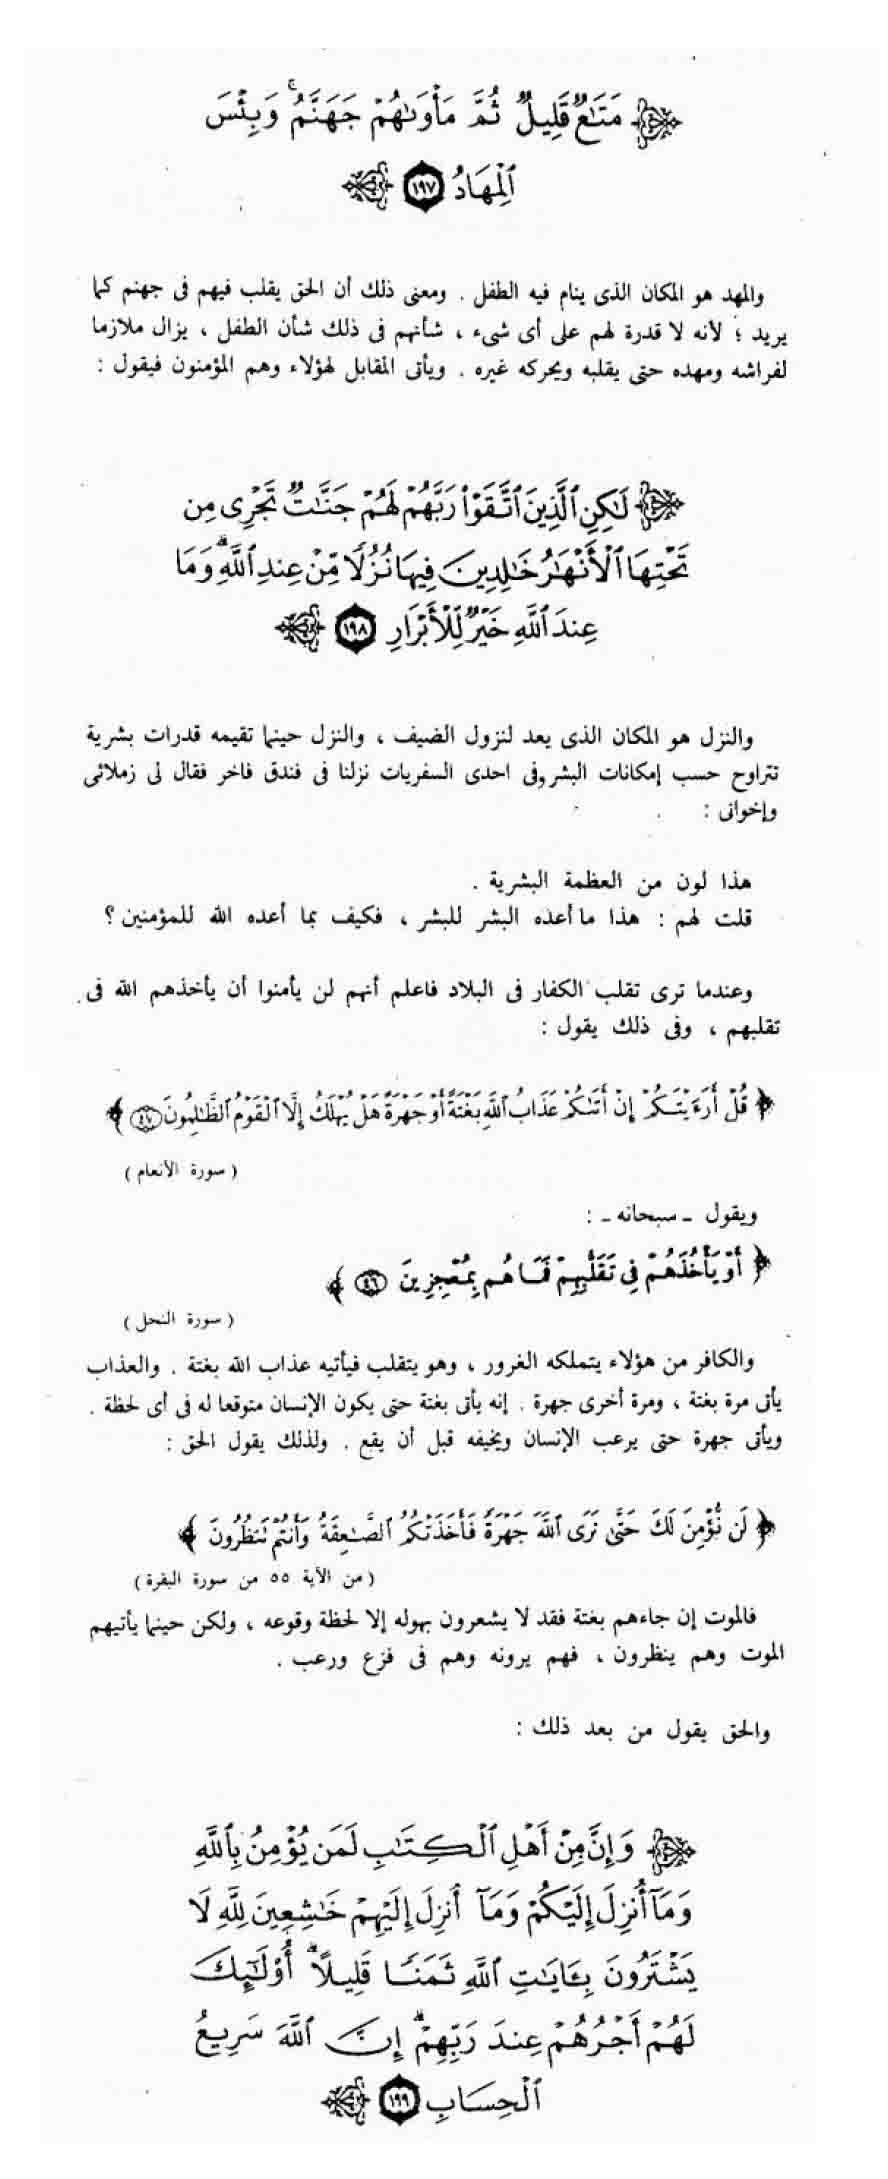 ﴿ مَتَاعٌ قَلِيلٌ ثُمَّ مَأْوَاهُمْ جَهَنَّمُ ۚ وَبِئْسَ
الْمِهَادُ ﴿١٩٧﴾ ﴾
والمهد هو المكان الذى ينام فيه الطفل . ومعنى ذلك أن الحق يقلب فيهم فى جهنم كما
يريد ؛ لأنه لا قدرة لهم على أى شىء ، شأنهم فى ذلك شأن الطفل ، يزال ملازما
لفراشه ومهده حتى يقلبه ويحركه غيره . ويأتى المقابل لهؤلاء وهم المؤمنون فيقول :
﴿ لَٰكِنِ الَّذِينَ اتَّقَوْا رَبَّهُمْ لَهُمْ جَنَّاتٌ تَجْرِى مِن
تَحْتِهَا الْأَنْهَارُ خَالِدِينَ فِيهَا نُزُلًا مِّنْ عِندِ اللَّهِ ۗ وَمَا
عِندَ اللَّهِ خَيْرٌ لِّلْأَبْرَارِ ﴿١٩٨﴾ ﴾
والنزل هو المكان الذى يعد لنزول الضيف ، والنزل حينما تقيمه قدرات بشرية
تتراوح حسب إمكانات البشر وفى احدى السفريات نزلنا فى فندق فاخر فقال لى زملائى
وإخوانى :
هذا لون من العظمة البشرية .
قلت لهم : هذا ما أعده البشر للبشر ، فكيف بما أعده الله للمؤمنين ؟
وعندما ترى تقلب الكفار فى البلاد فاعلم أنهم لن يأمنوا أن يأخذهم الله فى
تقلبهم ، وفى ذلك يقول :
﴿ قُلْ أَرَءَيْتَكُمْ إِنْ أَتَىٰكُمْ عَذَابُ اللَّهِ بَغْتَةً أَوْ جَهْرَةً هَلْ يُهْلَكُ إِلَّا الْقَوْمُ الظَّالِمُونَ ﴿٤٧﴾ ﴾
( سورة الأنعام )
ويقول ـ سبحانه ـ :
﴿ أَوْ يَأْخُذَهُمْ فِى تَقَلُّبِهِمْ فَمَا هُم بِمُعْجِزِينَ ﴿٤٦﴾ ﴾
( سورة النحل )
والكافر من هؤلاء يتملكه الغرور ، وهو يتقلب فيأتيه عذاب الله بغتة . والعذاب
يأتى مرة بغتة ، ومرة أخرى جهرة . إنه يأتى بغتة حتى يكون الإنسان متوقعا له فى أى لحظة .
ويأتى جهرة حتى يرعب الإنسان ويخيفه قبل أن يقع . ولذلك يقول الحق :
﴿ لَن نُّؤْمِنَ لَكَ حَتَّىٰ نَرَى اللَّهَ جَهْرَةً فَأَخَذَتْكُمُ الصَّاعِقَةُ وَأَنتُمْ تَنظُرُونَ ﴾
( من الآية ٥٥ من سورة البقرة )
فالموت إن جاءهم بغتة فقد لا يشعرون بهوله إلا لحظة وقوعه ، ولكن حينما يأتيهم
الموت وهم ينظرون ، فهم يرونه وهم فى فزع ورعب .
والحق يقول من بعد ذلك :
﴿ وَإِنَّ مِنْ أَهْلِ الْكِتَابِ لَمَن يُؤْمِنُ بِاللَّهِ
وَمَآ أُنزِلَ إِلَيْكُمْ وَمَآ أُنزِلَ إِلَيْهِمْ خَاشِعِينَ لِلَّهِ لَا
يَشْتَرُونَ بِـَٔايَاتِ اللَّهِ ثَمَنًا قَلِيلًا ۗ أُوْلَٰٓئِكَ
لَهُمْ أَجْرُهُمْ عِندَ رَبِّهِمْ ۗ إِنَّ اللَّهَ سَرِيعُ
الْحِسَابِ ﴿١٩٩﴾ ﴾